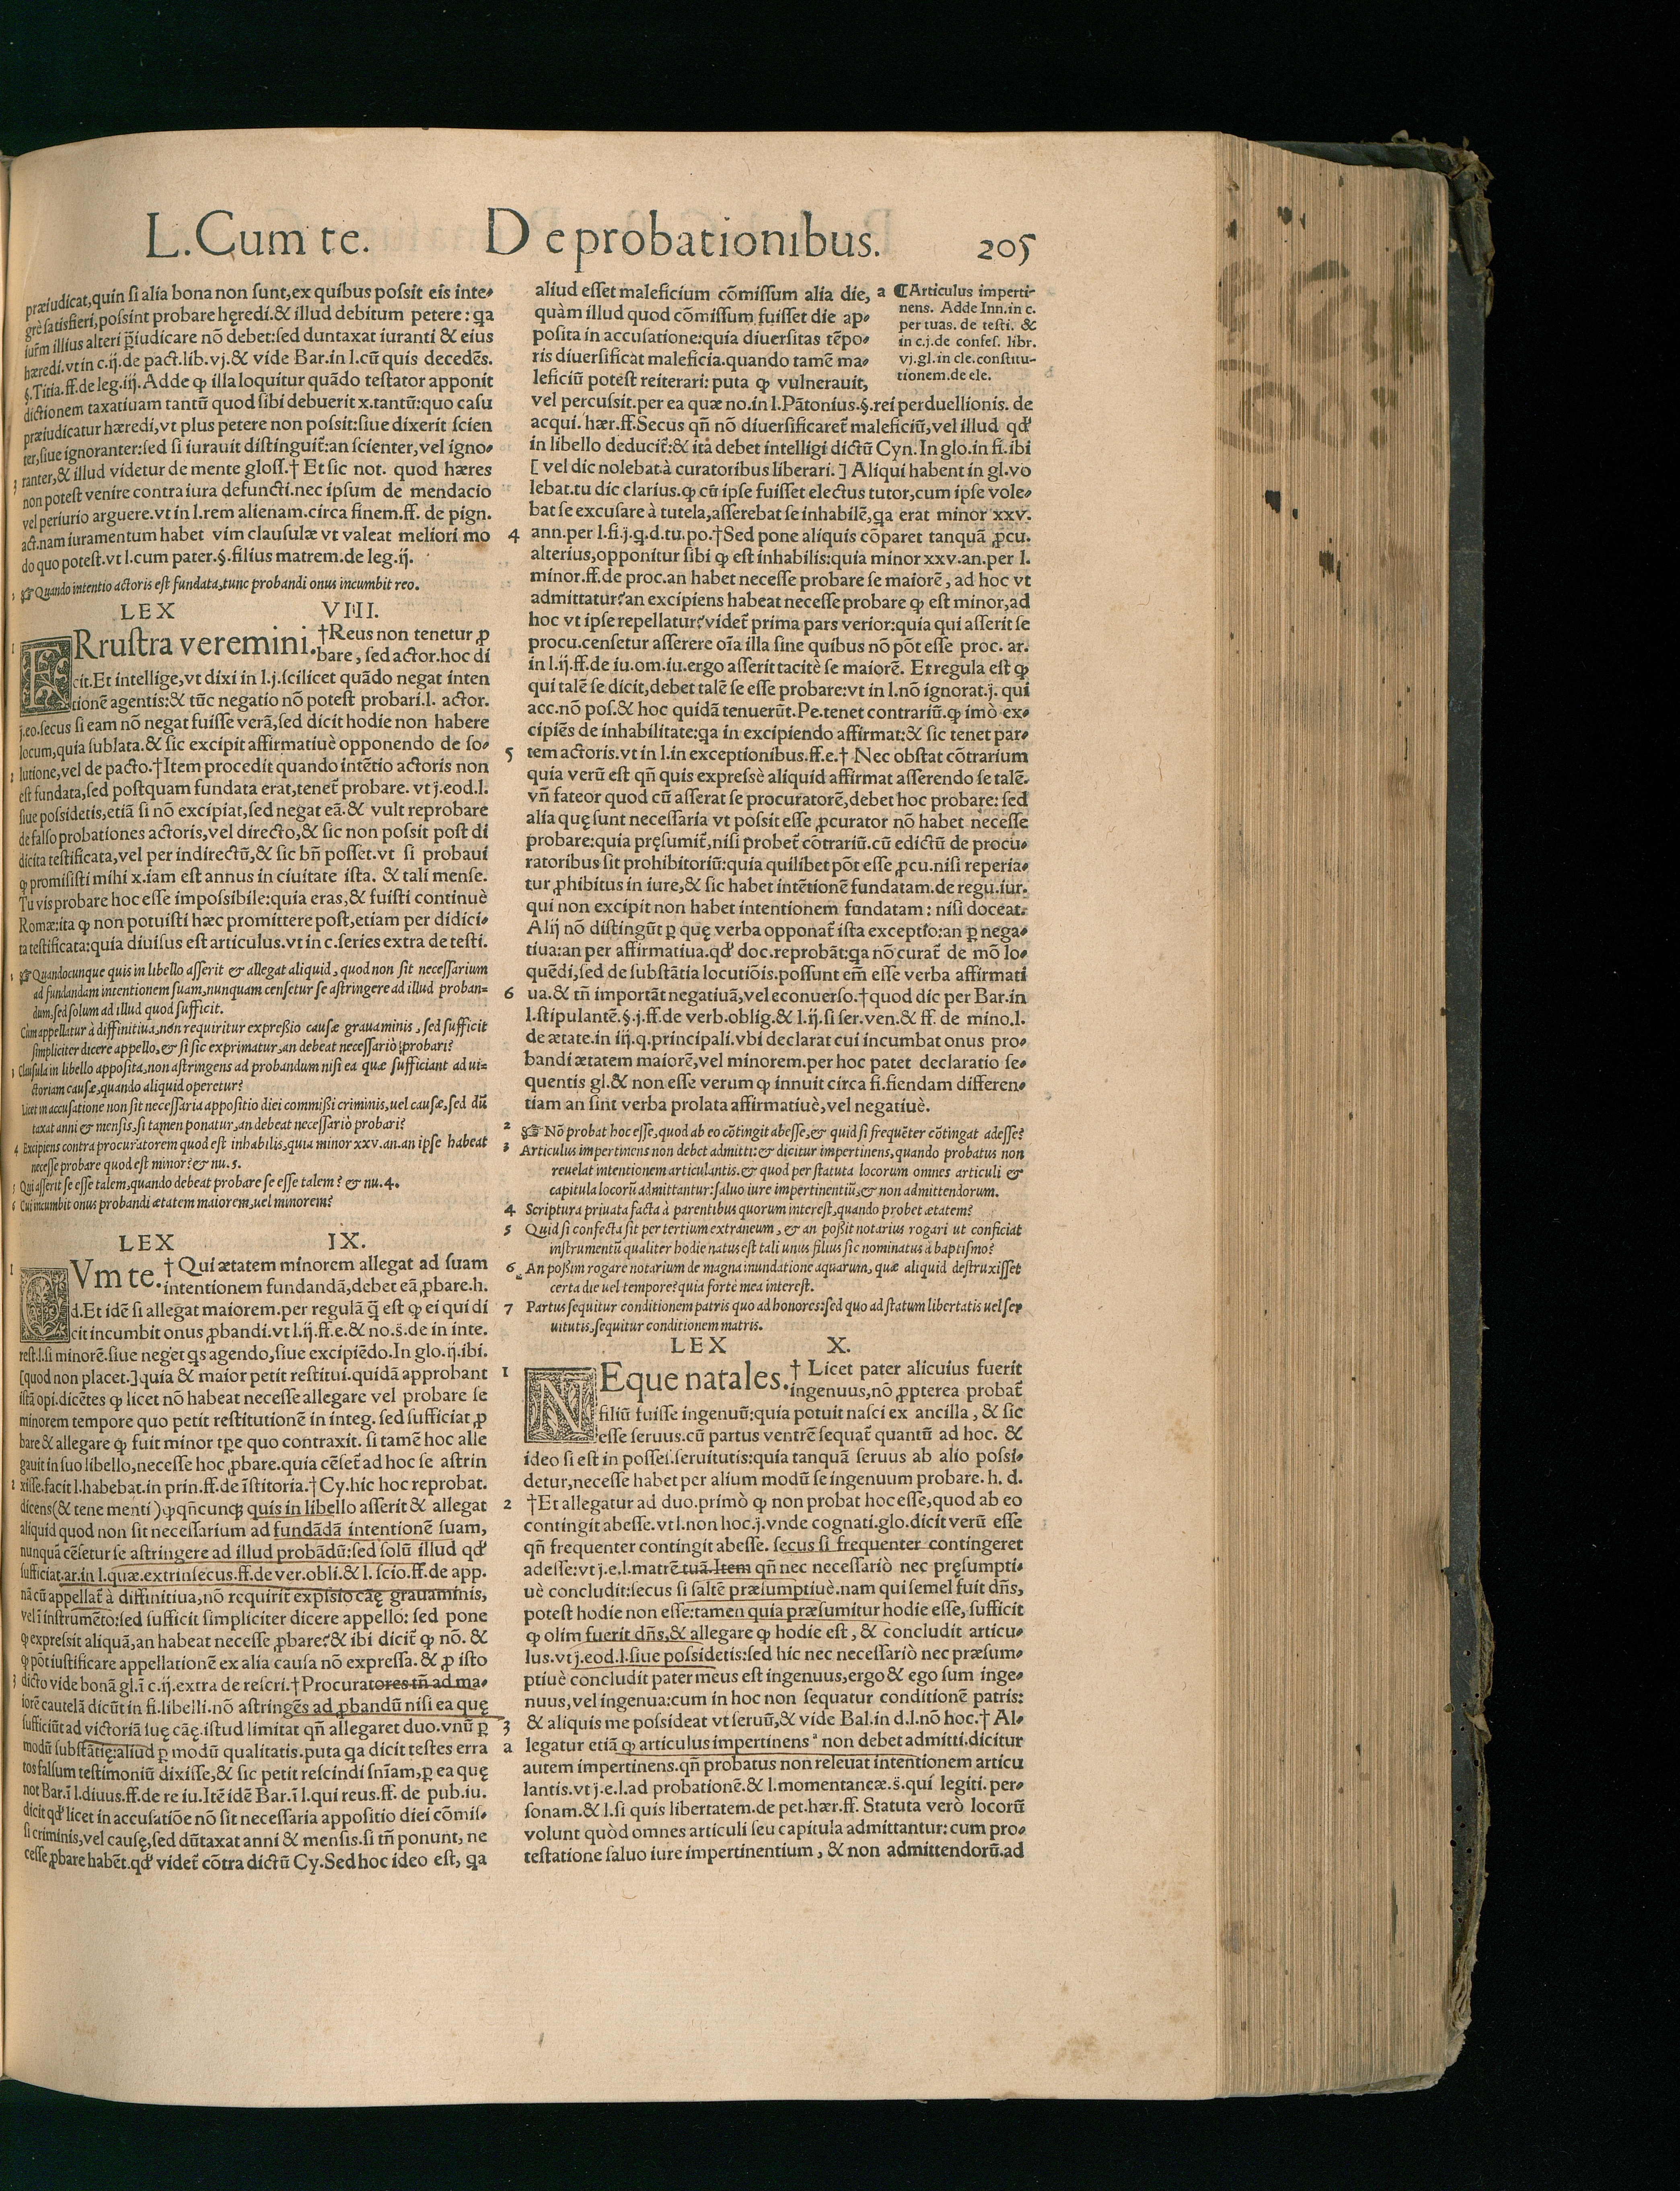 L.Cum te. De probationibus. 205
præiudicat,quin si alia bona non sunt,ex quibus possit eis inte-
grè satisfieri,possint probare hęredi.& illud debitum petere: qa
iurm̃ illius alteri p̄iudicare nō debet:sed duntaxat iuranti & eius
hæredi.vt in c.ij.de pact.lib.vj.& vide Bar.in l.cũ quis decedēs.
§.Titia.ff.de leg.iij.Adde ꝙ illa loquitur quādo testator apponit
dictionem taxatiuam tantũ quod sibi debuerit x.tantũ:quo casu
præiudicatur hæredi,vt plus petere non possit:siue dixerit scien
ter,siue ignoranter:sed si iurauit distinguit̃:an scienter,vel igno-
ranter,& illud videtur de mente gloss.† Et sic not. quod hæres
non potest venire contra iura defuncti.nec ipsum de mendacio
vel periurio arguere.vt in l.rem alienam.circa finem.ff. de pign.
act.nam iuramentum habet vim clausulæ vt valeat meliori mo
do quo potest.vt l.cum pater.§.filius matrem.de leg.ij.
1 ☞ Quando intentio actoris est fundata,tunc probandi onus incumbit reo.
LEX VIII.
1 FRrustra veremini. †Reus non tenetur ꝓ
bare, sed actor.hoc di
cit.Et intellige,vt dixi in l.j.scilicet quādo negat inten
tionē agentis:& tũc negatio nō potest probari.l. actor.
j.eo.secus si eam nō negat fuisse verā,sed dicit hodie non habere
locum,quia sublata.& sic excipit affirmatiuè opponendo de so-
2 lutione,vel de pacto.†Item procedit quando intētio actoris non
est fundata,sed postquam fundata erat,tenet̃ probare. vt j.eod.l.
siue possidetis,etiā si nō excipiat,sed negat eā.& vult reprobare
de falso probationes actoris,vel directo,& sic non possit post di
dicita testificata,vel per indirectũ,& sic bñ posset.vt si probaui
ꝙ promisisti mihi x.iam est annus in ciuitate ista. & tali mense.
Tu vis probare hoc esse impossibile:quia eras,& fuisti continuè
Romæ:ita ꝙ non potuisti hæc promittere post,etiam per didici-
ta testificata:quia diuisus est articulus.vt in c.series extra de testi.
1 ☞ Quandocunque quis in libello asserit & allegat aliquid, quod non sit necessarium
ad fundandam intentionem suam,nunquam censetur se astringere ad illud proban-
dum,sed solum ad illud quod sufficit.
Cum appellatur à diffinitiua,non requiritur expressio causæ grauaminis, sed sufficit
simpliciter dicere appello,& si sic exprimatur,an debeat necessariò probari?
3 Clausula in libello apposita,non astringens ad probandum nisi ea quæ sufficiant ad ui-
ctoriam causæ,quando aliquid operetur?
Licet in accusatione non sit necessaria appositio diei commissi criminis,uel causæ,sed dũ
taxat anni & mensis,si tamen ponatur,an debeat necessariò probari?
4 Excipiens contra procuratorem quod est inhabilis,quia minor xxv.an.an ipse habeat
necesse probare quod est minor? & nu.5.
5 Qui asserit se esse talem,quando debeat probare se esse talem? & nu.4.
6 Cui incumbit onus probandi ætatem maiorem,uel minorem?
LEX IX.
1 CVm te. † Qui ætatem minorem allegat ad suam
intentionem fundandā,debet eā ꝓbare.h.
d.Et idē si allegat maiorem.per regulā q̄ est ꝙ ei qui di
cit incumbit onus ꝓbandi.vt l.ij.ff.e.& no.s̃.de in inte.
rest.l.si minorē.siue neget qs agendo,siue excipiēdo.In glo.ij.ibi.
[quod non placet.] quia & maior petit restitui.quidā approbant
istā opi.dicētes ꝙ licet nō habeat necesse allegare vel probare se
minorem tempore quo petit restitutionē in integ. sed sufficiat ꝓ
bare & allegare ꝙ fuit minor tp̃e quo contraxit. si tamē hoc alle
gauit in suo libello,necesse hoc ꝓbare.quia cēset̃ ad hoc se astrin
2 xisse.facit l.habebat.in prin.ff.de īstitoria.†Cy.hic hoc reprobat.
dicens(& tene menti)ꝙ qñcunqꝫ quis in libello asserit & allegat
aliquid quod non sit necessarium ad fundādā intentionē suam,
nunquā cēsetur se astringere ad illud probādũ:sed solũ illud qd'
sufficiat.ar.in l.quæ.extrinsecus.ff.de ver.obli.& l. scio.ff.de app.
nā cũ appellat̃ à diffinitiua,nō requirit̃ exp̃ssio cāę grauaminis,
vel ī instrumēto:sed sufficit simpliciter dicere appello: sed pone
ꝙ expressit aliquā,an habeat necesse ꝓbare?& ibi dicit̃ ꝙ nō. &
ꝙ pōt iustificare appellationē ex alia causa nō expressa. & ꝓ isto
3 dicto vide bonā gl.ī c.ij.extra de rescri.†Procuratores tñ ad ma-
iorē cautelā dicũt in fi.libelli.nō astringēs ad ꝓbandũ nisi ea quę
sufficiũt ad victoriā suę cāę.istud limitat qñ allegaret duo.vnũ ꝑ
modũ substātię:aliud ꝑ modũ qualitatis.puta qa dicit testes erra
tos falsum testimoniũ dixisse,& sic petit rescindi sñiam,ꝑ ea quę
not Bar.ī l.diuus.ff.de re iu.Itē idē Bar.ī l.qui reus.ff. de pub.iu.
dicit qd' licet in accusatiōe nō sit necessaria appositio diei cōmis-
si criminis,vel causę,sed dũtaxat anni & mensis.si tñ ponunt, ne
cesse ꝓbare habēt.qd' videt̃ cōtra dictũ Cy.Sed hoc ideo est, qa
aliud esset maleficium cōmissum alia die,
quàm illud quod cōmissum fuisset die ap-
posita in accusatione:quia diuersitas tēpo-
ris diuersificat maleficia.quando tamē ma-
leficiũ potest reiterari: puta ꝙ vulnerauit,
vel percussit.per ea quæ no.in l.Pātonius.§.rei perduellionis. de
acqui. hær.ff.Secus qñ nō diuersificaret̃ maleficiũ,vel illud qd'
in libello deducit̃:& ita debet intelligi dictũ Cyn. In glo.in fi.ibi
[ vel dic nolebat.à curatoribus liberari. ] Aliqui habent in gl.vo
lebat.tu dic clarius.ꝙ cũ ipse fuisset electus tutor,cum ipse vole-
bat se excusare à tutela,asserebat se inhabilē,qa erat minor xxv.
4 ann.per l.fi.j.q.d.tu.po.†Sed pone aliquis cōparet tanquā ꝓcu.
alterius,opponitur sibi ꝙ est inhabilis:quia minor xxv.an.per l.
minor.ff.de proc.an habet necesse probare se maiorē, ad hoc vt
admittatur?an excipiens habeat necesse probare ꝙ est minor,ad
hoc vt ipse repellatur?videt̃ prima pars verior:quia qui asserit se
procu.censetur asserere oīa illa sine quibus nō pōt esse proc. ar.
in l.ij.ff.de iu.om.iu.ergo asserit tacitè se maiorē. Et regula est ꝙ
qui talē se dicit,debet talē se esse probare:vt in l.nō ignorat.j. qui
acc.nō pos.& hoc quidā tenuerũt.Pe.tenet contrariũ.ꝙ imò ex-
cipiēs de inhabilitate:qa in excipiendo affirmat:& sic tenet par-
5 tem actoris.vt in l.in exceptionibus.ff.e.† Nec obstat cōtrarium
quia verũ est qñ quis expressè aliquid affirmat asserendo se talē.
vñ fateor quod cũ asserat se procuratorē,debet hoc probare: sed
alia quę sunt necessaria vt possit esse ꝓcurator nō habet necesse
probare:quia pręsumit̃,nisi probet̃ cōtrariũ.cũ edictũ de procu-
ratoribus sit prohibitoriũ:quia quilibet pōt esse ꝓcu.nisi reperia-
tur ꝓhibitus in iure,& sic habet intētionē fundatam.de regu.iur.
qui non excipit non habet intentionem fundatam: nisi doceat.
Alij nō distingũt ꝑ quę verba opponat̃ ista exceptio:an ꝑ nega-
tiua:an per affirmatiua.qd' doc.reprobāt:qa nō curat̃ de mō lo-
quēdi,sed de substātia locutiōis.possunt em̃ esse verba affirmati
6 ua.& tñ importāt negatiuā,vel econuerso.†quod dic per Bar.in
l.stipulantē.§.j.ff.de verb.oblig.& l.ij.si ser.ven.& ff. de mino.l.
de ætate.in iij.q.principali.vbi declarat cui incumbat onus pro-
bandi ætatem maiorē,vel minorem.per hoc patet declaratio se-
quentis gl.& non esse verum ꝙ innuit circa fi.fiendam differen-
tiam an sint verba prolata affirmatiuè,vel negatiuè.
a ¶Articulus imperti-
nens. Adde Inn.in c.
per tuas. de testi. &
in c.j.de confes. libr.
vj.gl.in cle.constitu-
tionem.de ele.
2 ☞ Nō probat hoc esse,quod ab eo cōtingit abesse,& quid si frequēter cōtingat adesse?
3 Articulus impertinens non debet admitti:& dicitur impertinens,quando probatus non
reuelat intentionem articulantis.& quod per statuta locorum omnes articuli &
capitula locorũ admittantur:saluo iure impertinentiũ,& non admittendorum.
4 Scriptura priuata facta à parentibus quorum interest,quando probet ætatem?
5 Quid si confecta sit per tertium extraneum, & an possit notarius rogari ut conficiat
instrumentũ qualiter hodie natus est tali unus filius sic nominatus à baptismo?
6 An possim rogare notarium de magna inundatione aquarum, quæ aliquid destruxisset
certa die uel tempore?quia forte mea interest.
7 Partus sequitur conditionem patris quo ad honores:sed quo ad statum libertatis uel ser
uitutis,sequitur conditionem matris.
LEX X.
1 NEque natales. † Licet pater alicuius fuerit
ingenuus,nō ꝓpterea probat̃
filiũ fuisse ingenuũ:quia potuit nasci ex ancilla, & sic
esse seruus.cũ partus ventrē sequat̃ quantũ ad hoc. &
ideo si est in posses.seruitutis:quia tanquā seruus ab alio possi-
detur,necesse habet per alium modũ se ingenuum probare. h. d.
2 †Et allegatur ad duo.primò ꝙ non probat hoc esse,quod ab eo
contingit abesse.vt l.non hoc.j.vnde cognati.glo.dicit verũ esse
qñ frequenter contingit abesse. secus si frequenter contingeret
adesse:vt j.e.l.matrē tuā.Item qñ nec necessariò nec pręsumpti-
uè concludit:secus si saltē præsumptiuè.nam qui semel fuit dñs,
potest hodie non esse:tamen quia præsumitur hodie esse, sufficit
ꝙ olim fuerit dñs,& allegare ꝙ hodie est, & concludit articu-
lus.vt j.eod.l.siue possidetis:sed hic nec necessariò nec præsum-
ptiuè concludit pater meus est ingenuus,ergo & ego sum inge-
nuus,vel ingenua:cum in hoc non sequatur conditionē patris:
3 & aliquis me possideat vt seruũ,& vide Bal.in d.l.nō hoc.† Al-
a legatur etiā ꝙ articulus impertinens ª non debet admitti.dicitur
autem impertinens.qñ probatus non releuat intentionem articu
lantis.vt j.e.l.ad probationē.& l.momentaneæ.s̃.qui legiti. per-
sonam.& l.si quis libertatem.de pet.hær.ff. Statuta verò locorũ
volunt quòd omnes articuli seu capitula admittantur: cum pro-
testatione saluo iure impertinentium, & non admittendorũ.ad